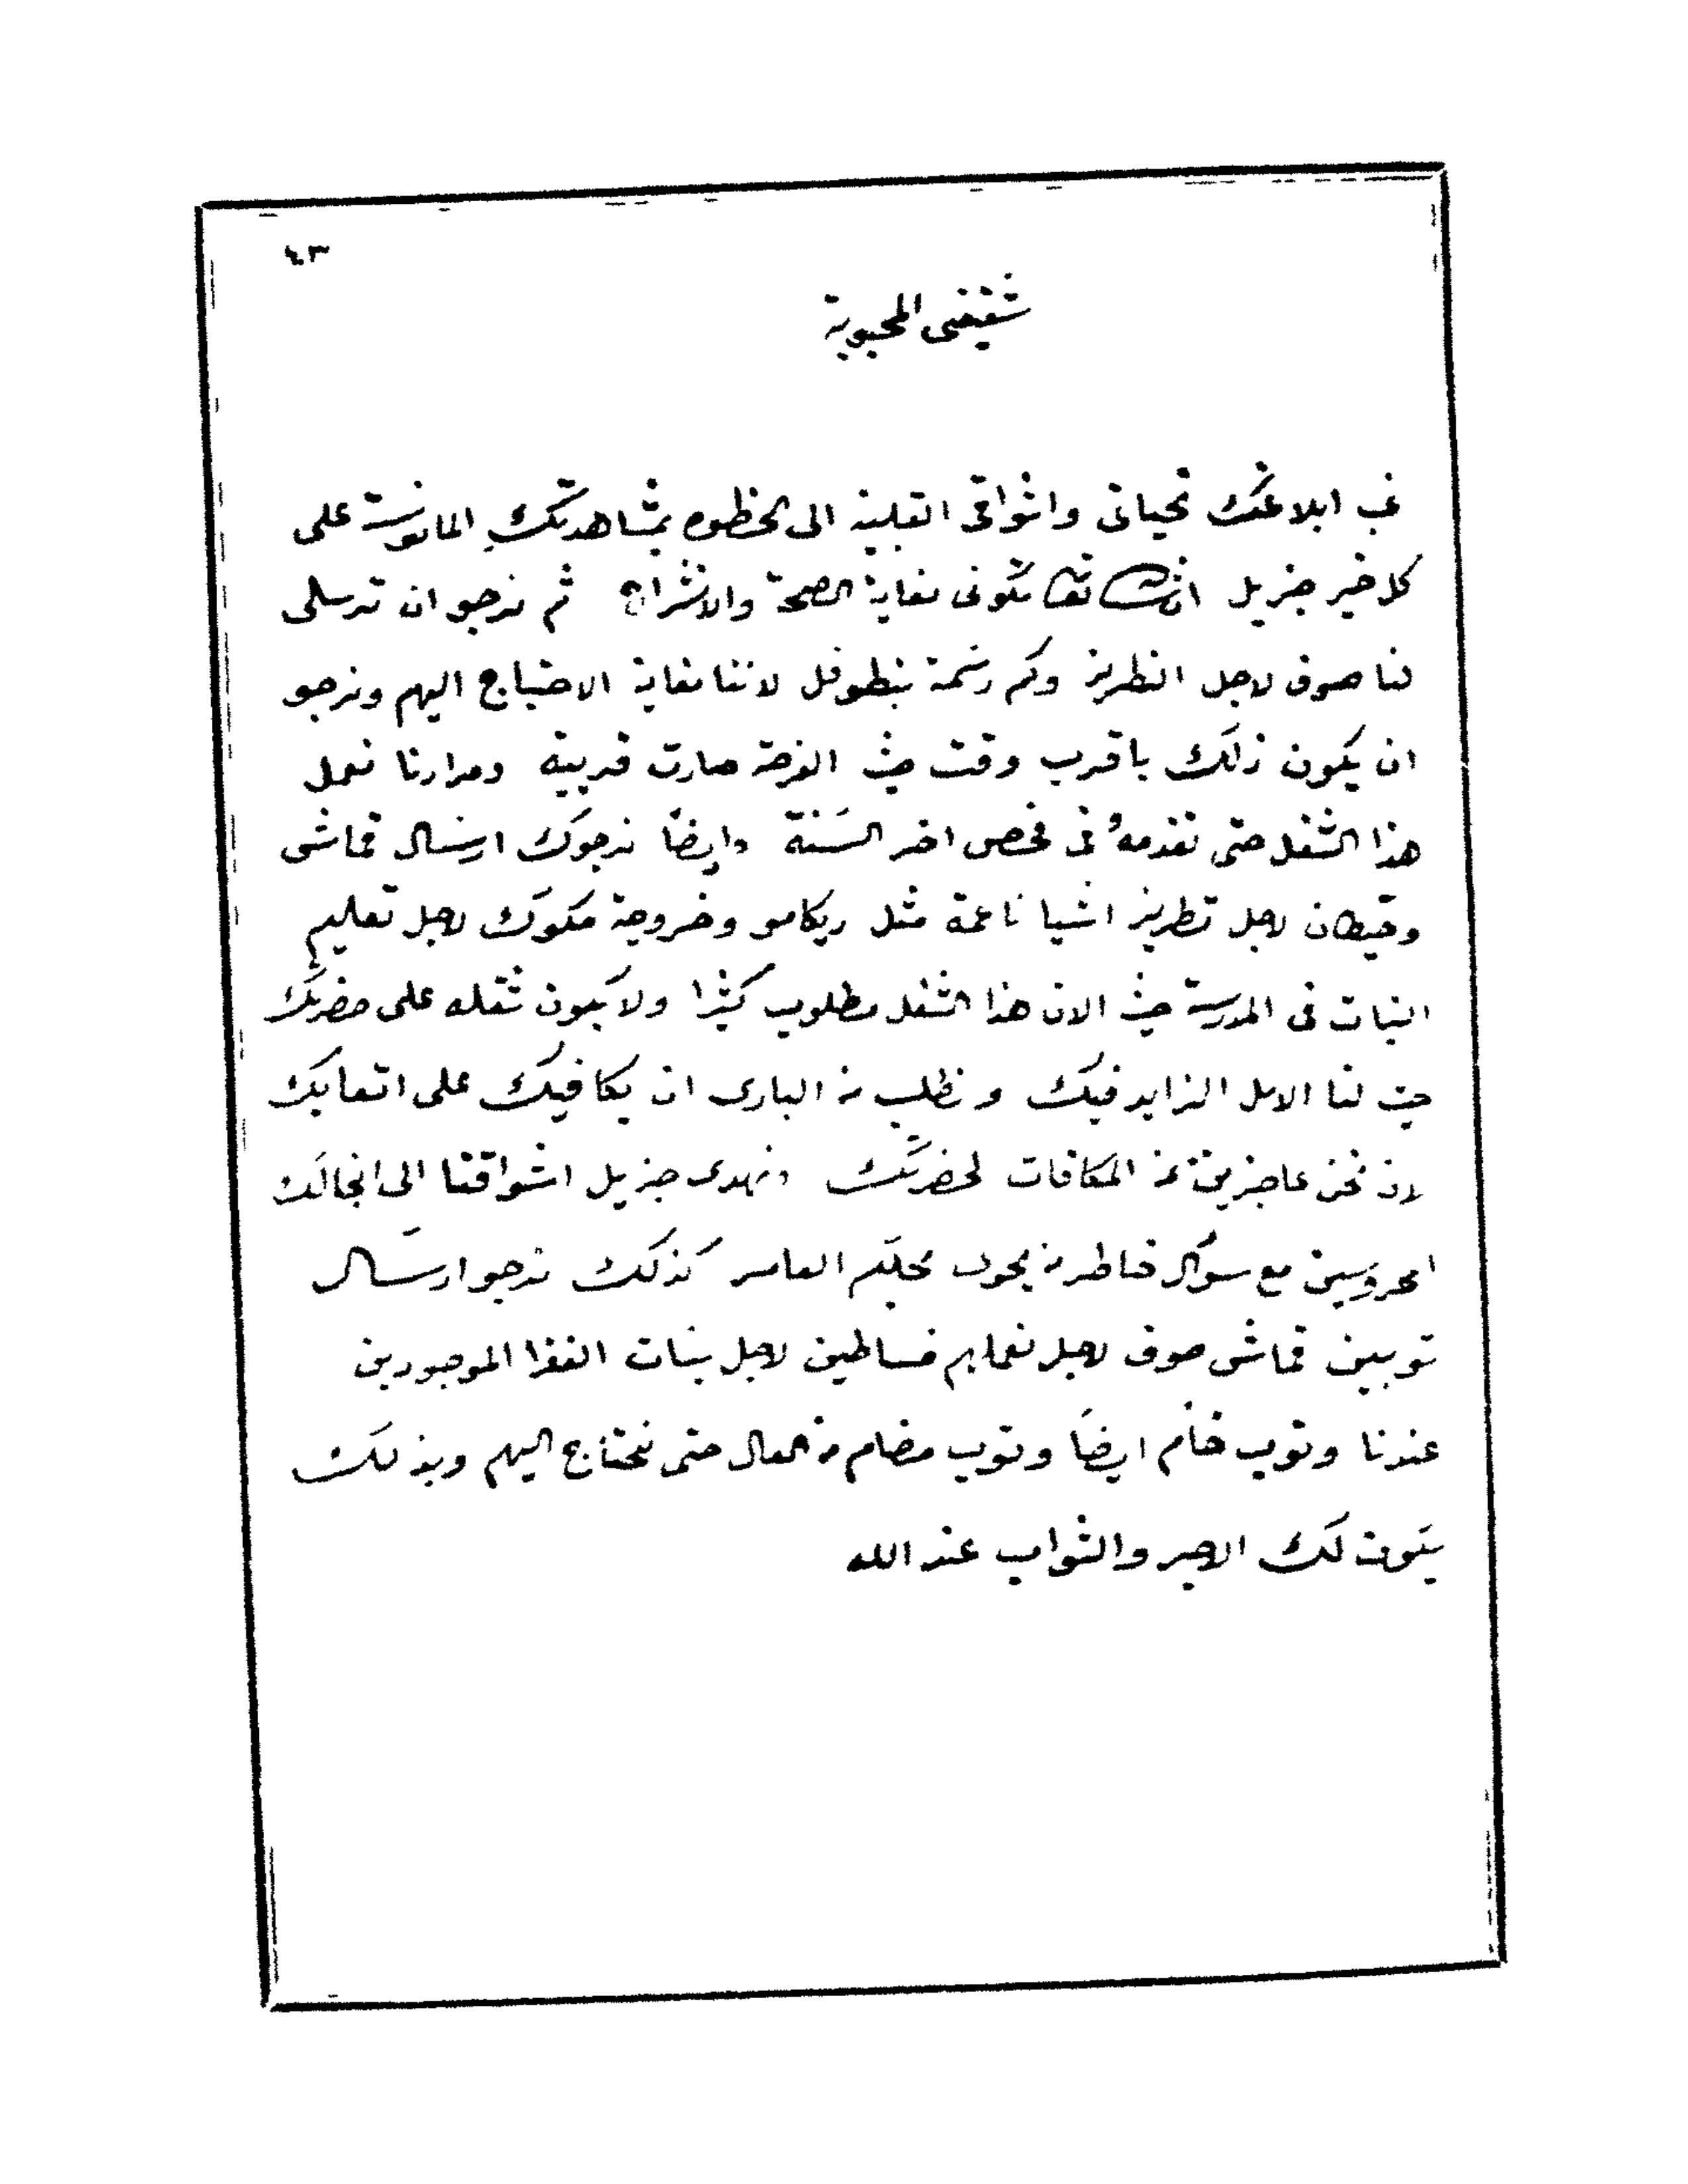 ٤٣
شقيقتى المحبوبة
غب ابلاغك تحياتى واشواقى القلبية الى الحظوه بمشاهدتكِ المانوسة على
كل خير جزيل انشالله تعا تكونى بغاية الصحة والانشراح ثم نرجو ان ترسلى
لنا صوف لاجل التطريز وكم رسمة بنطوفل لاننا بغاية الاحتياج اليهم ونرجو
ان يكون ذلك باقرب وقت حيث الفرصة صارت قريبة ومرادنا نعمل
هذا الشغل حتى نقدمهُ فى فحص اخر السَنة وايضاً نرجوك ارسال قماش
وخيطان لاجل تطريز اشيا ناعمة مثل ريكامو وخروجة مكوك لاجل تعليم
البنات فى المدرسة حيث الان هذا الشغل مطلوب كثيرا ولا يكون ثقله على حضرتك
حيث لنا الامل الزايد فيك ونطلب من البارى ان يكافيك على اتعابك
لان نحن عاجزين عن المكافات لحضرتك ونهدى جزيل اشواقنا الى انجالك
المحروسين مع سؤال خاطر من يحوى محلكم العامر كذلك نرجو ارسال
توبين قماش صوف لاجل نعملهم فساطين لاجل بنات الفقرا الموجودين
عندنا وتوب خام ايضاً وتوب مضام من العال حتى نحتاج اليهم وبذلك
يكون لك الاجر والثواب عند الله